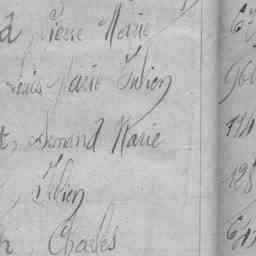 d, Pierre Marie
Louis Marie Julien
t, Armand Marie
, Julien
h, Charles